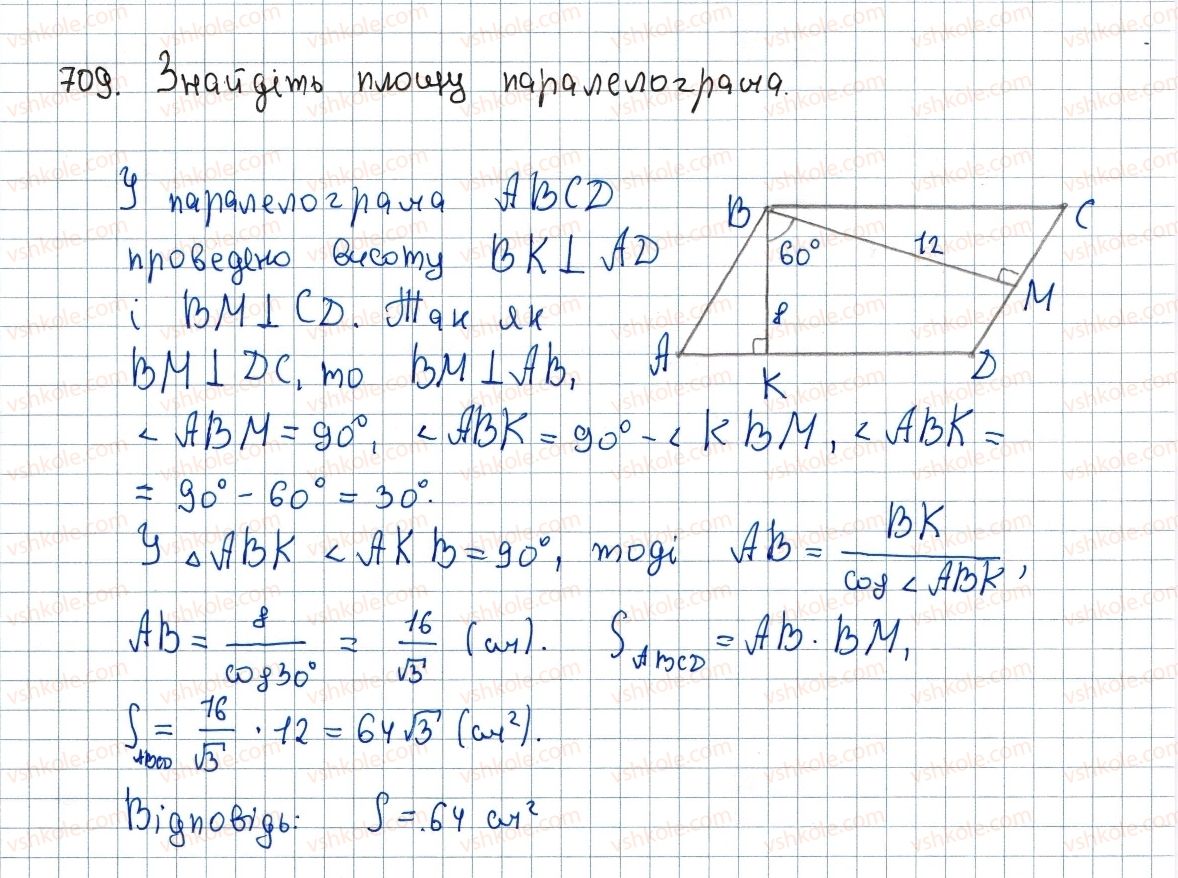 709. Знайдіть площу паралелограма.
У паралелограма ABCD
проведено висоту BK⊥AD
і BM⊥CD. Так як
BM⊥DC, то BM⊥AB,
∠ABM = 90°, ∠ABK = 90° - ∠KBM, ∠ABK =
= 90° - 60° = 30°.
У △ABK ∠AKB = 90°, тоді AB = BK / cos∠ABK,
AB = 8 / cos30° = 16 / √3 (см). S ABCD = AB · BM,
S ABCD = 16 / √3 · 12 = 64√3 (см²).
Відповідь: S = 64 см²
B
C
60°
12
M
8
A
K
D
vshkole.com